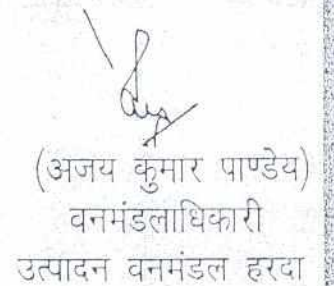 (अजय कुमार पाण्डेय)
वनमंडलाधिकारी
उत्पादन वनमंडल हरदा